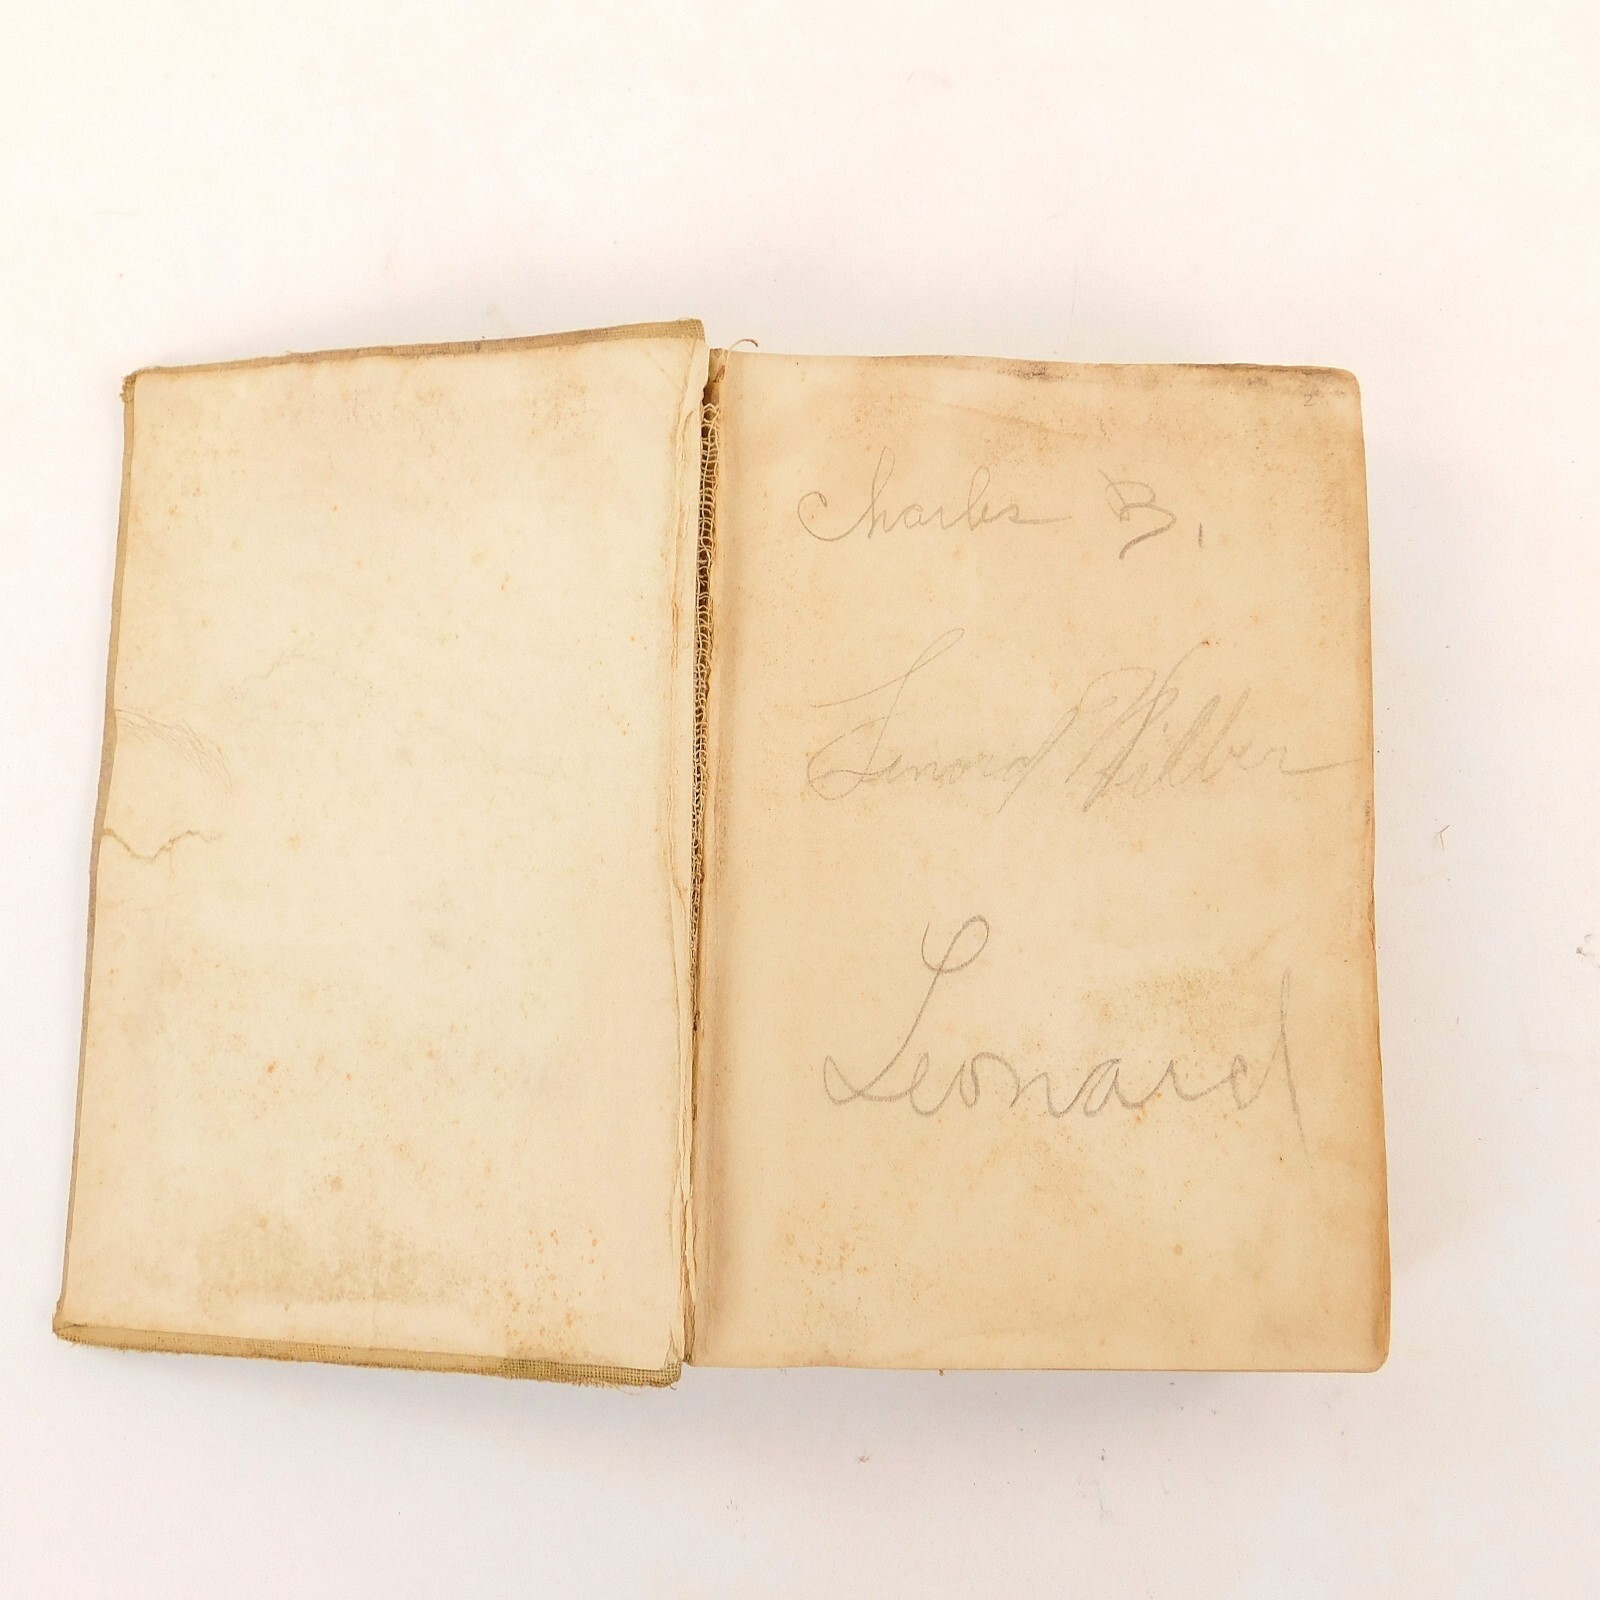 Charles B.
Lenord Wilber
Leonard